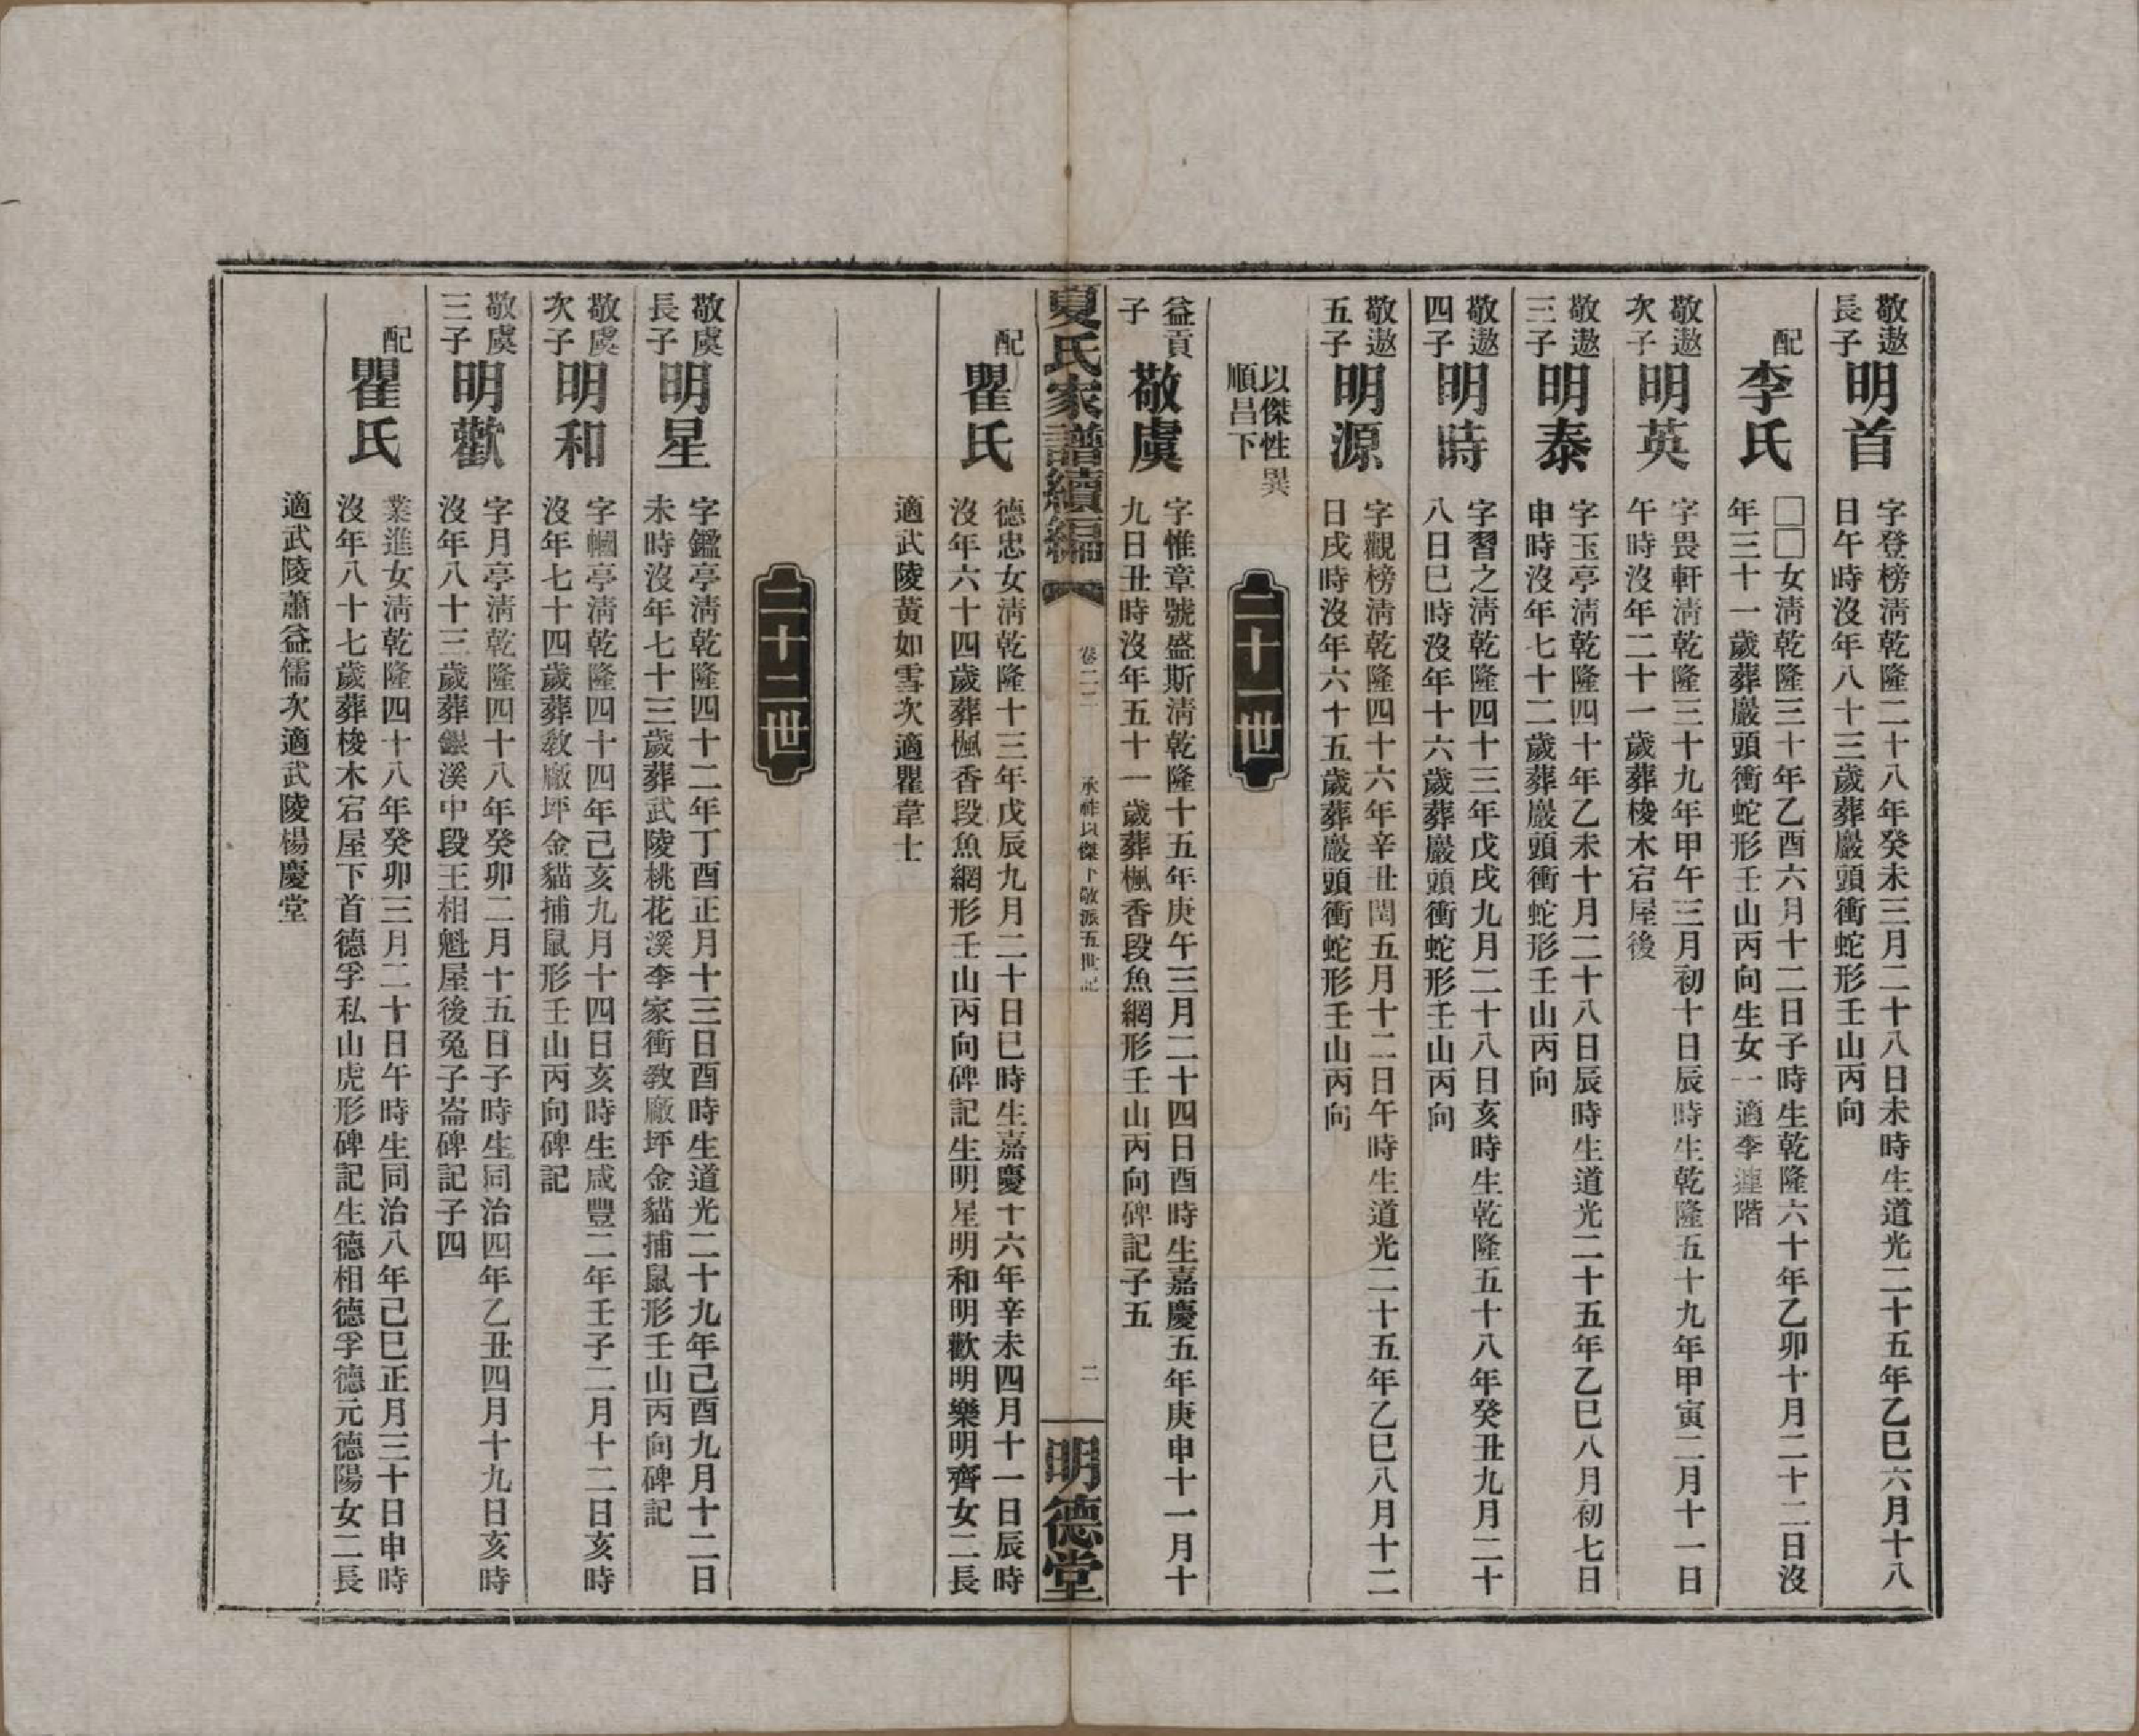 敬遨
長子
明首
字登榜淸乾隆二十八年癸未三月二十八日未時生道光二十五年乙巳六月十八
日午時沒年八十三歲葬巖頭衝蛇形壬山丙向
配
李氏
□□女淸乾隆三十年乙酉六月十二日子時生乾隆六十年乙卯十月二十二日沒
年三十一歲葬巖頭衝蛇形壬山丙向生女一適李連階
敬遨
次子
明英
字畏軒淸乾隆三十九年甲午三月初十日辰時生乾隆五十九年甲寅二月十一日
午時沒年二十一歲葬梭木宕屋後
敬遨
三子
明泰
字玉亭淸乾隆四十年乙未十月二十八日辰時生道光二十五年乙巳八月初七日
申時沒年七十二歲葬巖頭衝蛇形壬山丙向
敬遨
四子
明時
字習之淸乾隆四十三年戊戌九月二十八日亥時生乾隆五十八年癸丑九月二十
八日巳時沒年十六歲葬巖頭衝蛇形壬山丙向
敬遨
五子
明源
字觀榜淸乾隆四十六年辛丑閏五月十二日午時生道光二十五年乙巳八月十二
日戌時沒年六十五歲葬巖頭衝蛇形壬山丙向
以傑性異
順昌下
二十一世
益貢
子
敬虞
字惟章號盛斯淸乾隆十五年庚午三月二十四日酉時生嘉慶五年庚申十一月十
九日丑時沒年五十一歲葬楓香段魚網形壬山丙向碑記子五
夏氏家譜續編
卷二二
承祥以傑下敬派五世記
二
明德堂
配
瞿氏
德忠女淸乾隆十三年戊辰九月二十日巳時生嘉慶十六年辛未四月十一日辰時
沒年六十四歲葬楓香段魚網形壬山丙向碑記生明星明和明歡明樂明齊女二長
適武陵黃如雪次適瞿韋士
二十二世
敬虞
長子
明星
字鑑亭淸乾隆四十二年丁酉正月十三日酉時生道光二十九年己酉九月十二日
未時沒年七十三歲葬武陵桃花溪李家衝教廠坪金貓捕鼠形壬山丙向碑記
敬虞
次子
明和
字幗亭淸乾隆四十四年己亥九月十四日亥時生咸豐二年壬子二月十二日亥時
沒年七十四歲葬教廠坪金貓捕鼠形壬山丙向碑記
敬虞
三子
明歡
字月亭淸乾隆四十八年癸卯二月十五日子時生同治四年乙丑四月十九日亥時
沒年八十三歲葬銀溪中段王相魁屋後兔子崙碑記子四
配
瞿氏
業進女淸乾隆四十八年癸卯三月二十日午時生同治八年己巳正月三十日申時
沒年八十七歲葬梭木宕屋下首德孚私山虎形碑記生德相德孚德元德陽女二長
適武陵蕭益儒次適武陵楊慶堂